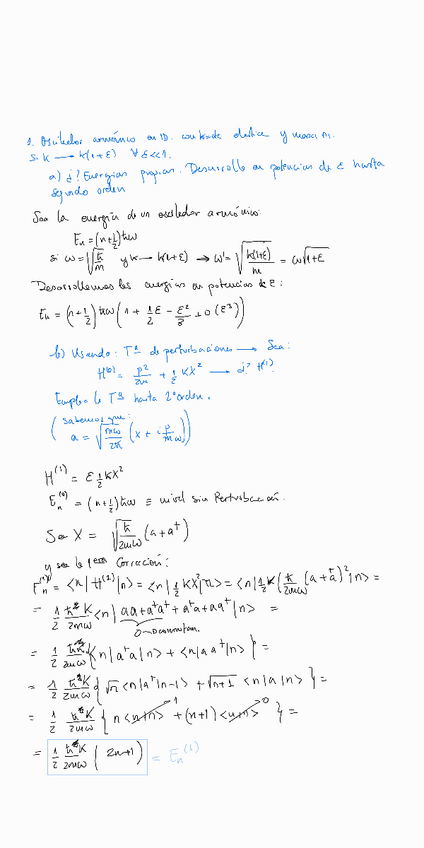 1. Oscilador armónico en 1D. con k=cte elastica y masa m.
Si k → k(1+ε) ∀ ε<<1.
a) ¿? Energias propias. Desarrollo en potencias de ε hasta
segundo orden
Sea la energía de un oscilador armónico:
E_n = (n+1/2)ħω
si ω = √(k/m) y k → k(1+ε) → ω' = √(k(1+ε)/m) = ω√(1+ε)
Desarrollemos las energías en potencias de ε:
E_n = (n+1/2)ħω(1 + 1/2 ε - ε²/8 + O(ε³))
b) Usando: Tª de perturbaciones → Sea:
H^(0) = p²/2m + 1/2 KX² → ¿? H^(1)
Emplee la Tª hasta 2º orden.
(sabemos que:
a = √(mω/2ħ) (x + i p/mω))
H^(1) = ε 1/2 KX²
E_n^(0) = (n+1/2)ħω ≡ nivel sin Perturbación.
Sea X = √(ħ/2mω) (a+a†)
y sea la Corrección:
E_n^(1) = <n|H^(1)|n> = <n|1/2 KX²|n> = <n|1/2 K(ħ/2mω)(a+a†)²|n> =
= 1/2 ħK/2mω <n|aa+a†a†+a†a+aa†|n> =
0→
= 1/2 ħK/2mω {<n|a†a|n> + <n|aa†|n>} =
= 1/2 ħK/2mω {√n <n|a†|n-1> + √(n+1) <n|a|n>} =
= 1/2 ħK/2mω {n<n|n> 1 + (n+1)<n|n> 0} =
= 1/2 ħK/2mω (2n+1) = E_n^(1)